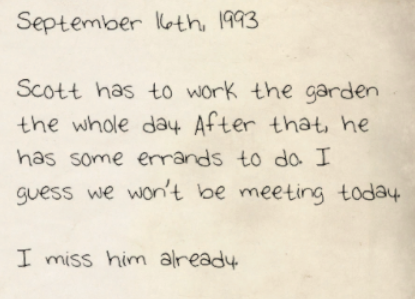 September 16th, 1993
Scott has to work the garden
the whole day. After that, he
has some errands to do. I
guess we won't be meeting today.
I miss him already.